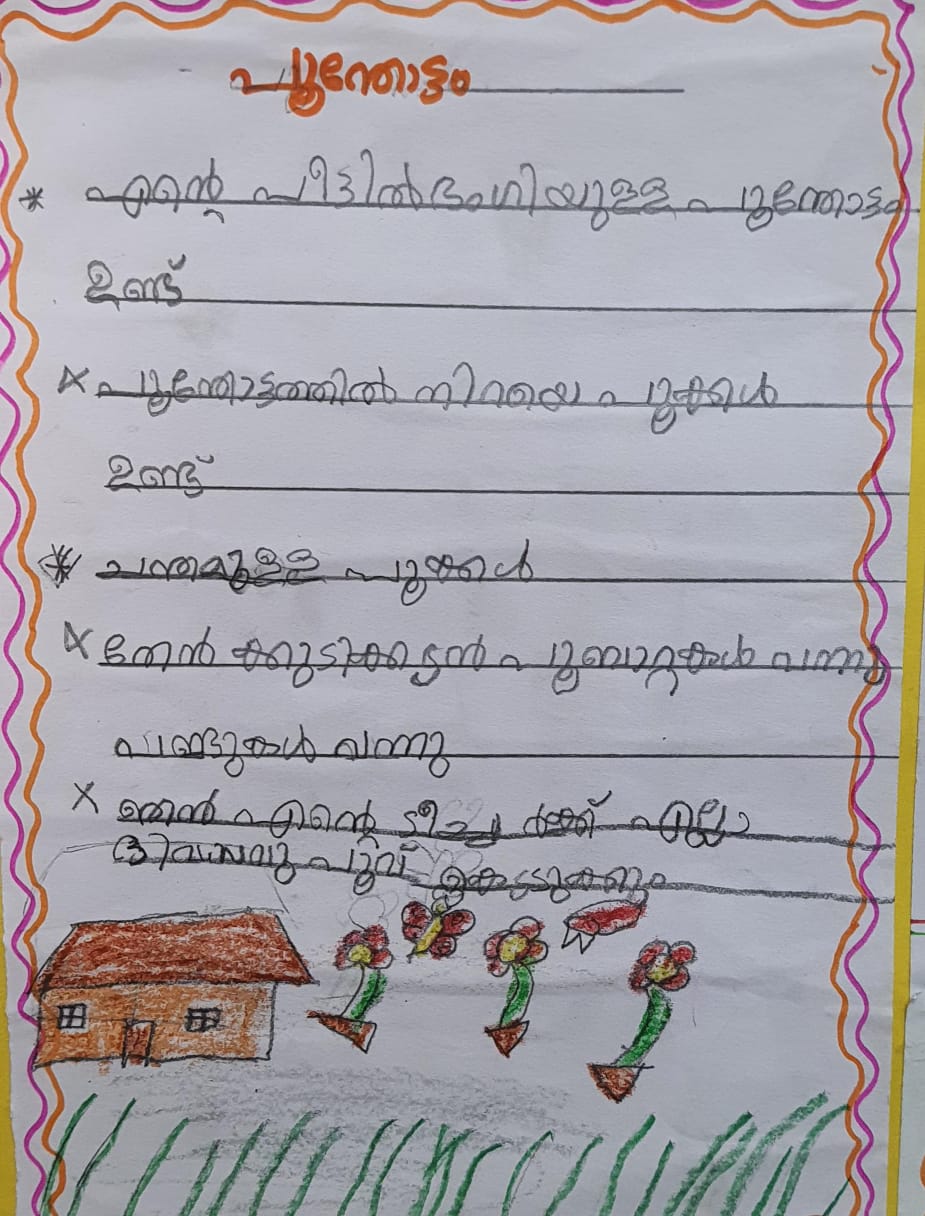 പൂന്തോട്ടം
* എന്റെ പീട്ടിൽ ഭംഗിയുള്ള പൂന്തോട്ടം
ഉണ്ട്
× പൂന്തോട്ടത്തിൽ നിറയെ പൂക്കൾ
ഉണ്ട്
* ചന്തമുള്ള പൂക്കൾ
× തേൻ കുടിക്കാൻ പൂമ്പാറ്റകൾ വന്നു
വണ്ടുകൾ വന്നു
× ഞാൻ എന്റെ ടീച്ചർക്ക് എല്ലാ
ദിവസവും പൂവ് കൊടുക്കും